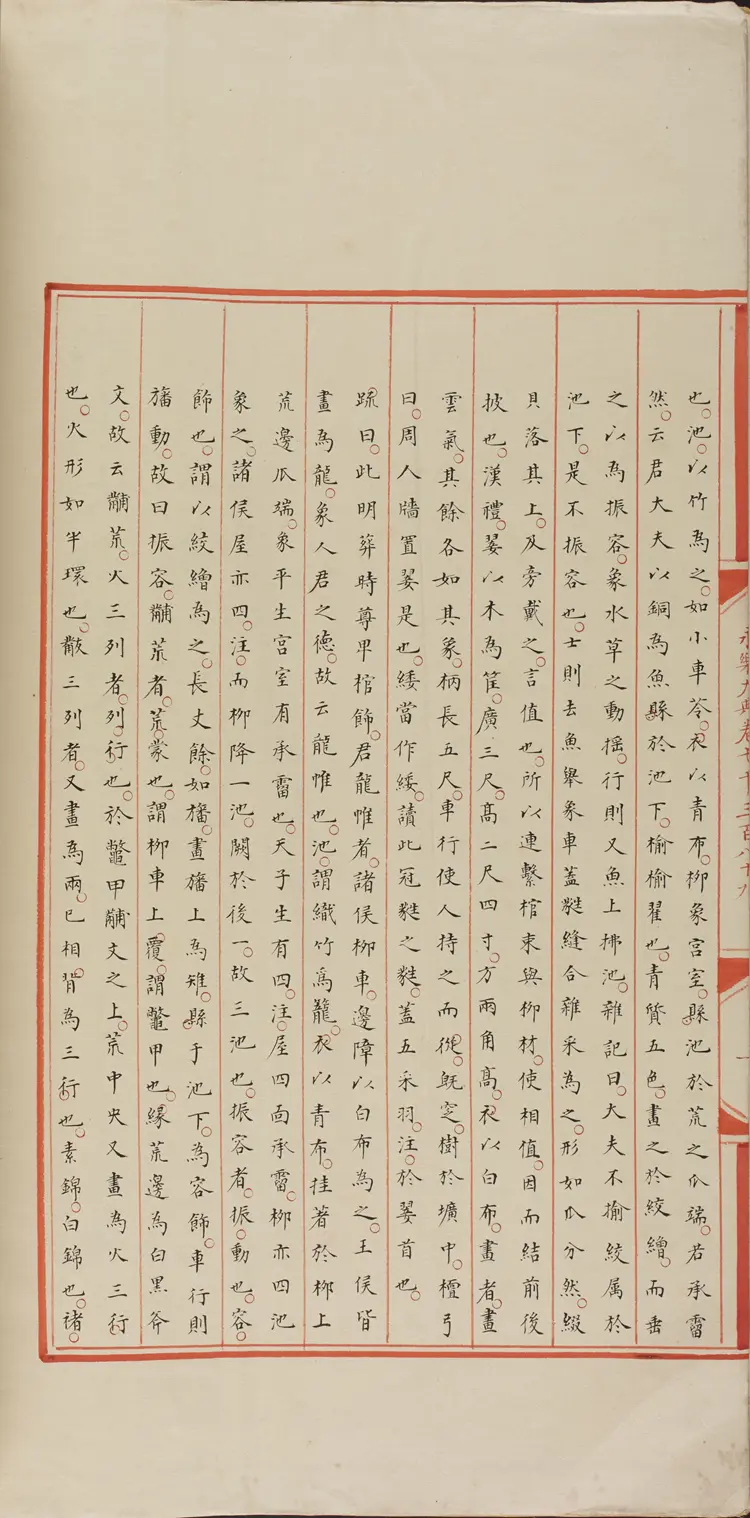 永樂大典卷七千三百八十九
一
也。池。以竹為之。如小車苓。衣以青布。柳象宮室。縣池於荒之爪端。若承霤
然。云君大夫以銅為魚縣於池下。揄揄翟也。青質五色。畫之於絞繒。而垂
之以為振容。象水草之動揺。行則又魚上拂池。雜記曰。大夫不揄絞属於
池下。是不振容也。士則去魚舉象車蓋蕤縫合雜采為之。形如爪分然。綴
貝落其上。及旁戴之。言值也。所以連繫棺束與柳材。使相值。因而結前後
披也。漢禮。翣以木為筐。廣三尺。髙二尺四寸。方兩角髙。衣以白布。畫者。畫
雲氣。其餘各如其象。柄長五尺。車行使人持之而從。旣窆。樹於壙中。檀弓
曰。周人牆置翣是也。緌當作緌。讀此冠蕤之蕤。蓋五采羽。注。於翣首也。
䟽曰。此明葬時尊卑棺飾。君龍帷者。諸侯柳車。邊障以白布為之。王侯皆
畫為龍。象人君之徳。故云龍帷也。池。謂織竹為籠。衣以青布。挂著於柳上
荒邊爪端。象平生宮室有承霤也。天子生有四。注。屋四面承霤。柳亦四池
象之。諸侯屋亦四。注。而柳降一池。闕於後一。故三池也。振容者。振。動也。容。
飾也。謂以絞繒為之。長丈餘。如旛。畫旛上為雉。縣于池下。為容飾。車行則
旛動。故曰振容。黼荒者。荒。蒙也。謂柳車上覆。謂鼈甲也。縁荒邊為白黒斧
文。故云黼荒。火三列者。列。行也。於鼈甲黼文之上。荒中央又畫為火三行
也。火形如半環也。黻三列者。又畫為兩。已相。背為三行也。素錦。白錦也。褚。